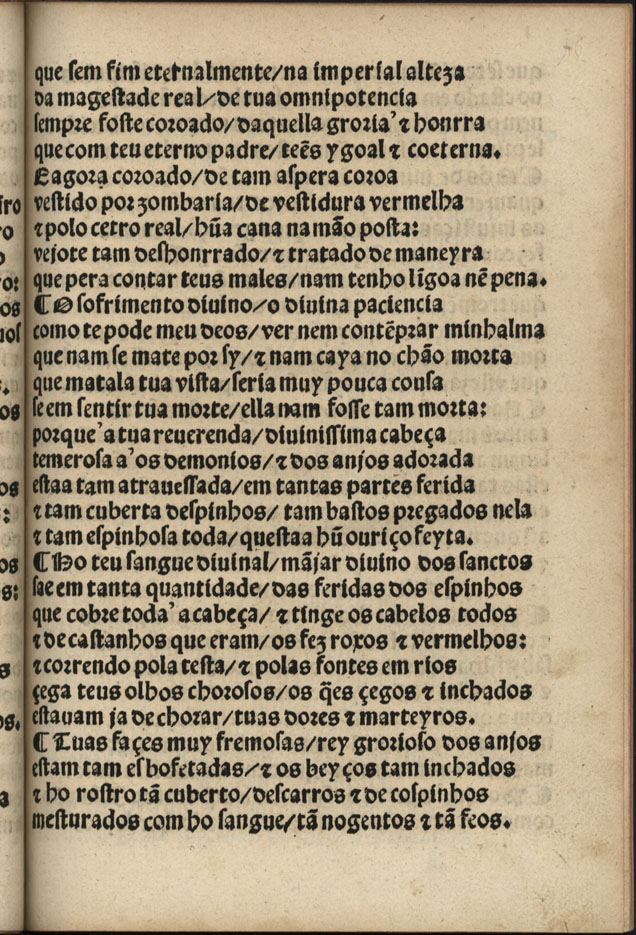 que sem fim eternalmente/na imperial alteza
da magestade real/de tua omnipotencia
sempre foste coroado/daquella groria' ⁊ honrra
que com teu eterno padre/teẽs ygoal ⁊ coeterna.
E agora coroado/de tam aspera coroa
vestido por zombaria/de vestidura vermelha
⁊ polo cetro real/hũa cana na mão posta:
vejote tam deshonrrado/⁊ tratado de maneyra
que pera contar teus males/nam tenho lĩgoa nẽ pena.
¶ O sofrimento diuino/o diuina paciencia
como te pode meu deos/ver nem contẽprar minhalma
que nam se mate por sy/⁊ nam caya no chão morta
que matala tua vista/seria muy pouca cousa
se em sentir tua morte/ella nam fosse tam morta:
porque' a tua reuerenda/diuinissima cabeça
temerosa a'os demonios/⁊ dos anjos adorada
estaa tam atrauessada/em tantas partes ferida
⁊ tam cuberta despinhos/ tam bastos pregados nela
⁊ tam espinhosa toda/questaa hũ ouriço feyta.
¶ Ho teu sangue diuinal/mãjar diuino dos sanctos
sae em tanta quantidade/das feridas dos espinhos
que cobre toda' a cabeça/ ⁊ tinge os cabelos todos
⁊ de castanhos que eram/os fez roxos ⁊ vermelhos:
⁊ correndo pola testa/⁊ polas fontes em rios
çega teus olhos chorosos/os q̃es çegos ⁊ inchados
estauam ja de chorar/tuas dores ⁊ marteyros.
¶ Tuas façes muy fremosas/rey grorioso dos anjos
estam tam esbofetadas/⁊ os beyços tam inchados
⁊ ho rostro tã cuberto/descarros ⁊ de cospinhos
mesturados com ho sangue/tã nogentos ⁊ tã feos.